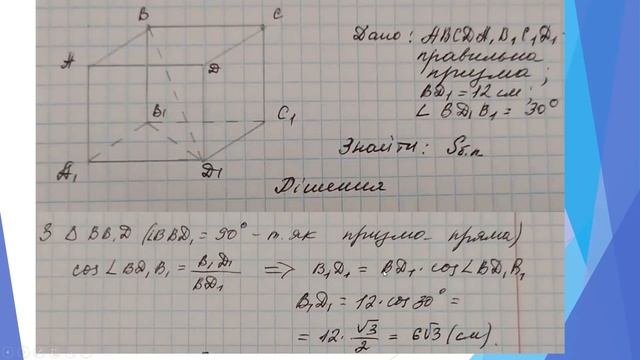 B
C
A
D
B₁
C₁
A₁
D₁
Дано: ABCDA₁B₁C₁D₁ -
правильна
призма;
BD₁ = 12 см;
∠ BD₁B₁ = 30°
Знайти: Sб.п
Рішення
З △ BB₁D (∠BBD₁ = 90° - т. як призма пряма)
cos∠BD₁B₁ = B₁D₁/BD₁ => B₁D₁ = BD₁ · cos∠BD₁B₁
B₁D₁ = 12 · cos 30° =
= 12 · √3/2 = 6√3 (см).